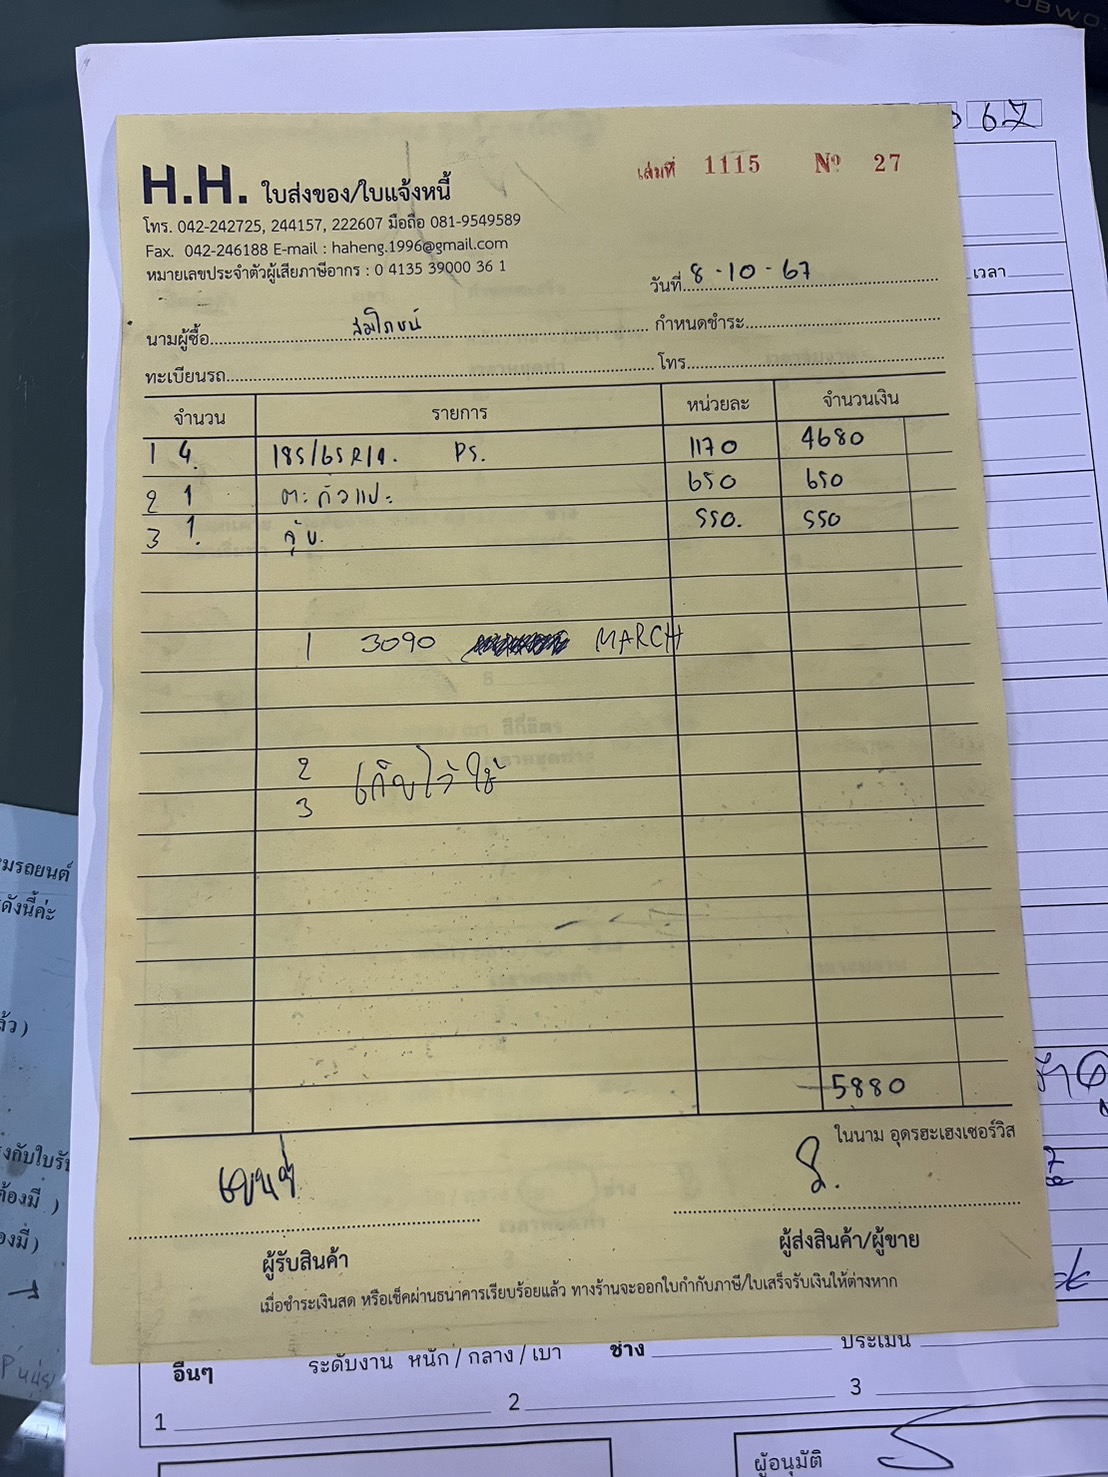 67
H.H. ใบส่งของ/ใบแจ้งหนี้
เล่มที่ 1115 Nº 27
โทร. 042-242725, 244157, 222607 มือถือ 081-9549589
Fax. 042-246188 E-mail : haheng.1996@gmail.com
หมายเลขประจำตัวผู้เสียภาษีอากร : 0 4135 39000 36 1
วันที่ 8-10-67
เวลา
นามผู้ซื้อ สมโภชน์ กำหนดชำระ
ทะเบียนรถ โทร.
จำนวน รายการ หน่วยละ จำนวนเงิน
1 4. 185/65R14. PS. 1170 4680
2 1 ตะกั่วแปะ 650 650
3 1. จุ๊บ. 550. 550
1 3090 MARCH
2 เก็บไว้ใช้
3
5880
ในนาม อุดรฮะเฮงเซอร์วิส
ผู้รับสินค้า
ผู้ส่งสินค้า/ผู้ขาย
เมื่อชำระเงินสด หรือเช็คผ่านธนาคารเรียบร้อยแล้ว ทางร้านจะออกใบกำกับภาษี/ใบเสร็จรับเงินให้ต่างหาก
อื่นๆ ระดับงาน หนัก / กลาง / เบา ช่าง ประเมิน
1 2 3
ผู้อนุมัติ
มรถยนต์
ดังนี้ค่ะ
ล้ว )
องมี )